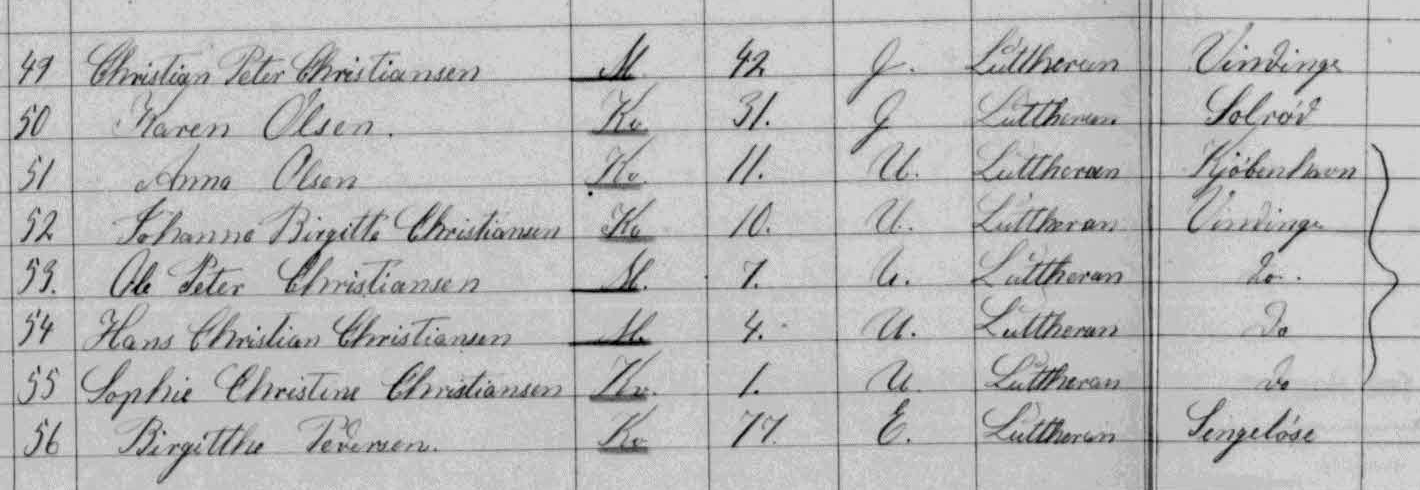 49 Christian Peter Christiansen M. 42 G. Luttheran Vindinge
50 Karen Olsen. Kv. 31. G Luttheran Solrød
51 Anna Olsen Kv. 11. U. Luttheran Kjöbenhavn
52 Johanne Birgitte Christiansen Kv 10. U. Luttheran Vindinge
53. Ole Peter Christiansen M. 7. U. Luttheran do.
54 Hans Christian Christiansen M. 4. U. Luttheran do
55 Sophie Christine Christiansen Kv. 1. U Luttheran do
56 Birgitthe Pedersen. Kv 77. E. Luttheran Sengeløse